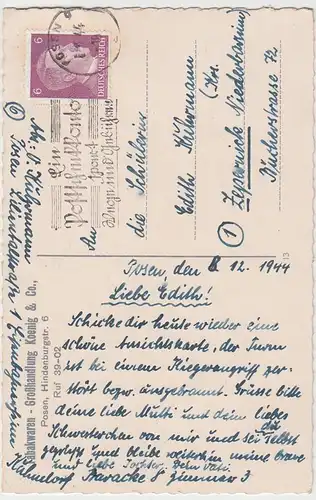 6
DEUTSCHES REICH
6
POSEN
Ein
Postscheckkonto
spart
Wege und Gebühren
An
die Schülerin
Edith Kühzmann
(1) Zepernick Niederbarnim
(Krs.
Bücherstrasse 72
Posen, den 8 12. 1944
Liebe Edith!
Schicke dir heute wieder eine
schöne Ansichtskarte, der Turm
ist bei einem Fliegerangriff zer-
stört bezw. ausgebrannt. Grüsse bitte
deine liebe Mutti und dein liebes
Schwesterchen von mir und sei du selbst
gegrüsst und bleibe weiterhin meine brave
und liebe Tochter. Dein Vati.
Baracke 8 Zimmer 3
Abs. O. Kühzmann
Posen
Tabakwaren - Großhandlung Koenig & Co.,
Posen, Hindenburgstr. 6
Ruf 39-02